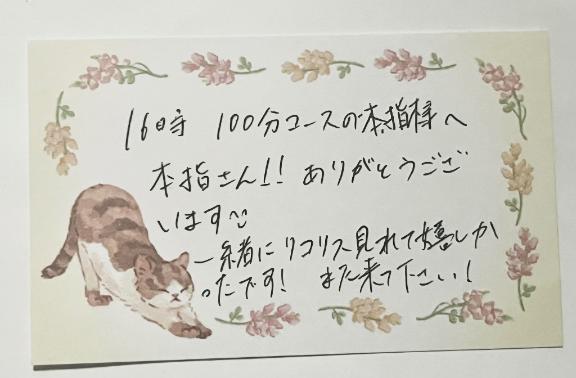 16時 100分コースの本指様へ
本指さん!! ありがとうござ
います
一緒にリコリス見れて嬉しか
ったです! また来て下さい!